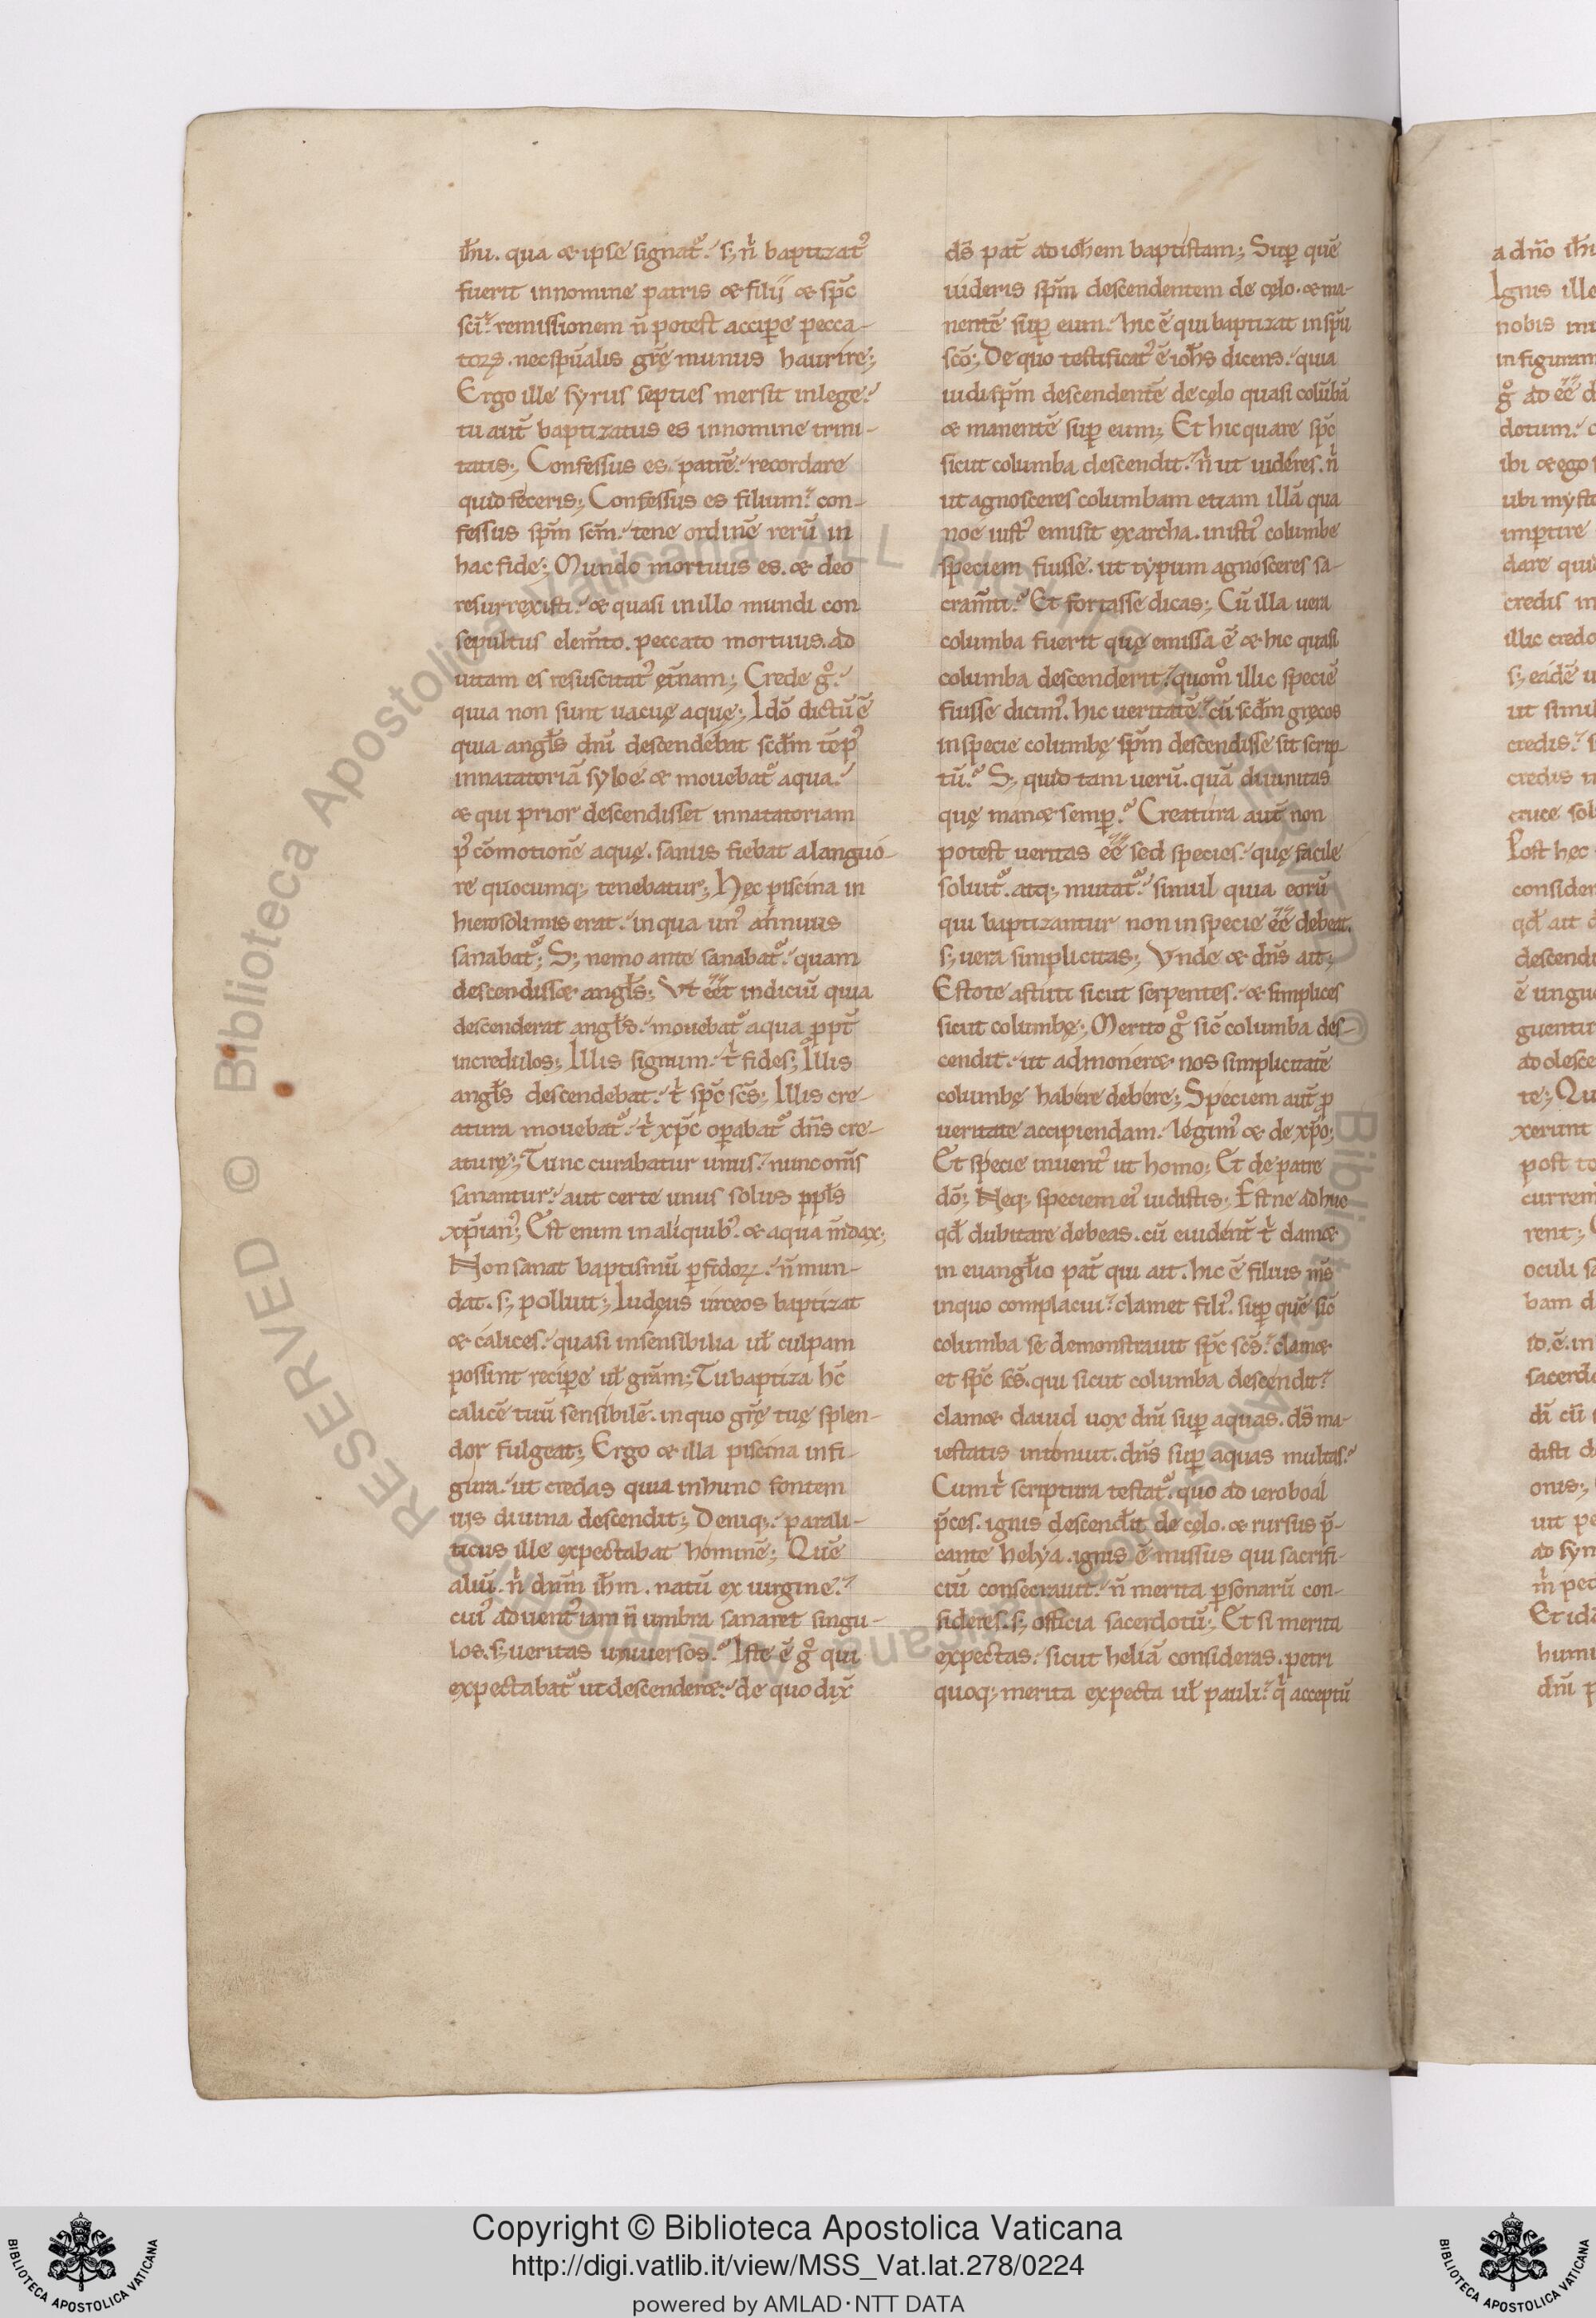 ih̄u. qua & ipse signat᷒. s; n̄ baptizat᷒
fuerit in nomine patris & filii & sp̄c
sc̄i. remissionem n̄ potest accip̱e pecca-
torꝝ. nec sp̄ualis gr̄ę munus haurire;
Ergo ille syrus septies mersit in lege.
tu aut̄ baptizatus es in nomine trini-
tatis; Confessus es patrē. recordare
quid feceris; Confessus es filium. con-
fessus sp̄m sc̄m. tene ordinē rerū in
hac fide; Mundo mortuus es. & deo
resurrexisti. & quasi in illo mundi con
sepultus elem̄to. peccato mortuus. ad
uitam es resuscitat᷒ ęt̄nam; Crede gͦ.
quia non sunt uacuę aquę; Idō dictū ē
quia angl̄s dn̄i descendebat scd̄m tēp᷒
in natatoriā syloe & mouebat᷒ aqua.
& qui prior descendisset in natatoriam
p᷒ cōmotionē aquę. sanus fiebat a languo-
re quocumq; tenebatur; Hęc piscina in
hierosolimis erat. in qua un᷒ annuus
sanabat᷒; S; nemo ante sanabat᷒. quam
descendiss& angl̄s; Vt eēt indiciū quia
descenderat angl̄s. mouebat᷒ aqua ꝓpt̄
incredulos; Illis signum. t̍ fides; Illis
angl̄s descendebat. t̍ sp̄c sc̄s; Illis cre-
atura mouebat᷒. t̍ xp̄c op̱abat᷒ dn̄s cre-
aturę; Tunc curabatur unus. nunc om̄s
sanantur. aut certe unus solus ppl̄s
xp̄ian᷒; Est enim in aliquib᷒. & aqua m̄dax;
Non sanat baptismū ꝑfidoꝝ. n̄ mun-
dat. s; polluit; Iudęus urceos baptizat
& calices. quasi insensibilia ul̄ culpam
possint recip̱e ul̄ grām; Tu baptiza hc̄
calicē tuū sensibilē. in quo gr̄ę tuę splen-
dor fulgeat; Ergo & illa piscina in fi-
gura. ut credas quia in hunc fontem
uis diuina descendit; Deniq;. parali-
ticus ille expectabat hominē; Quē
aliū. n̍ dn̄m ih̄m. natū ex uirgine.
cui᷒ aduent᷒ iam n̄ umbra sanaret singu-
los. s; ueritas uniuersos. Iste ē gͦ qui
expectabat᷒ ut descender&. de quo dix̄
ds̄ pat̄ ad ioh̄em baptistam; Suꝑ quē
uideris sp̄m descendentem de cęlo. & ma-
nentē suꝑ eum. hic ē qui baptizat in sp̄u
sc̄o; De quo testificat᷒ ē ioh̄s dicens. quia
uidi sp̄m descendentē de cęlo quasi colūbā
& manentē suꝑ eum; Et hic quare sp̄c
sicut columba descendit. n̍ ut uideres. n̍
ut agnosceres columbam etiam illā qua
noe iust᷒ emisit ex archa. in isti᷒ columbe
speciem fuisse. ut typum agnosceres sa-
cram̄ti. Et fortasse dicas; Cū illa uera
columba fuerit quę emissa ē & hic quasi
columba descenderit. quomͦ illic speciē
fuisse dicim᷒. hic ueritatē. cū scd̄m gręcos
in specie columbę sp̄m descendisse sit scrip-
tū. S; quid tam uerū. quā diuinitas
quę man& semꝑ. Creatura aut̄ non
potest ueritas eē sed species. quę facile
soluit᷒. atq; mutat᷒. simul quia eorū
qui baptizantur non in specie eē debeat.
s; uera simplicitas; Vnde & dn̄s ait;
Estote astuti sicut serpentes. & simplices
sicut columbę; Merito gͦ sic̄ columba des-
cendit. ut admoner& nos simplicitatē
columbę habere debere; Speciem aut̄ ꝓ
ueritate accipiendam. legim᷒ & de xp̄o;
Et specie inuent᷒ ut homo; Et de patre
dō; Neq; speciem ei᷒ uidistis; Est ne adhuc
qđ dubitare debeas. cū euident̄ t̍ clam&
in euangl̄io pat̄ qui ait. hic ē filius m̄s
in quo complacui. clamet fili᷒. suꝑ quē sic̄
columba se demonstrauit sp̄c sc̄s. clam&
et sp̄c sc̄s. qui sicut columba descendit.
clam& dauid uox dn̄i suꝑ aquas. ds̄ ma-
iestatis intonuit. dn̄s suꝑ aquas multas.
Cum t̍ scriptura testat᷒. quo ad ieroboal
p̄ces. ignis descendit de cęlo. & rursus p̄-
cante helya. ignis ē missus qui sacrifi-
ciū consecrauit. n̄ merita ꝑsonarū con-
sideres. s; officia sacerdotū; Et si merita
expectas. sicut heliā consideras. petri
quoq; merita expecta ul̄ pauli. q̍ acceptū
a dn̄o ih̄u
Ignis ille
in figuram
dotum.
dare qui
illic credo
cruce sol
Post hęc
consider
qđ ait
descendi
post to
oculi sa
sacerdo
onis;
Copyright © Biblioteca Apostolica Vaticana
http://digi.vatlib.it/view/MSS_Vat.lat.278/0224
powered by AMLAD·NTT DATA
BIBLIOTECA APOSTOLICA VATICANA
BIBLIOTECA APOSTOLICA VATICANA